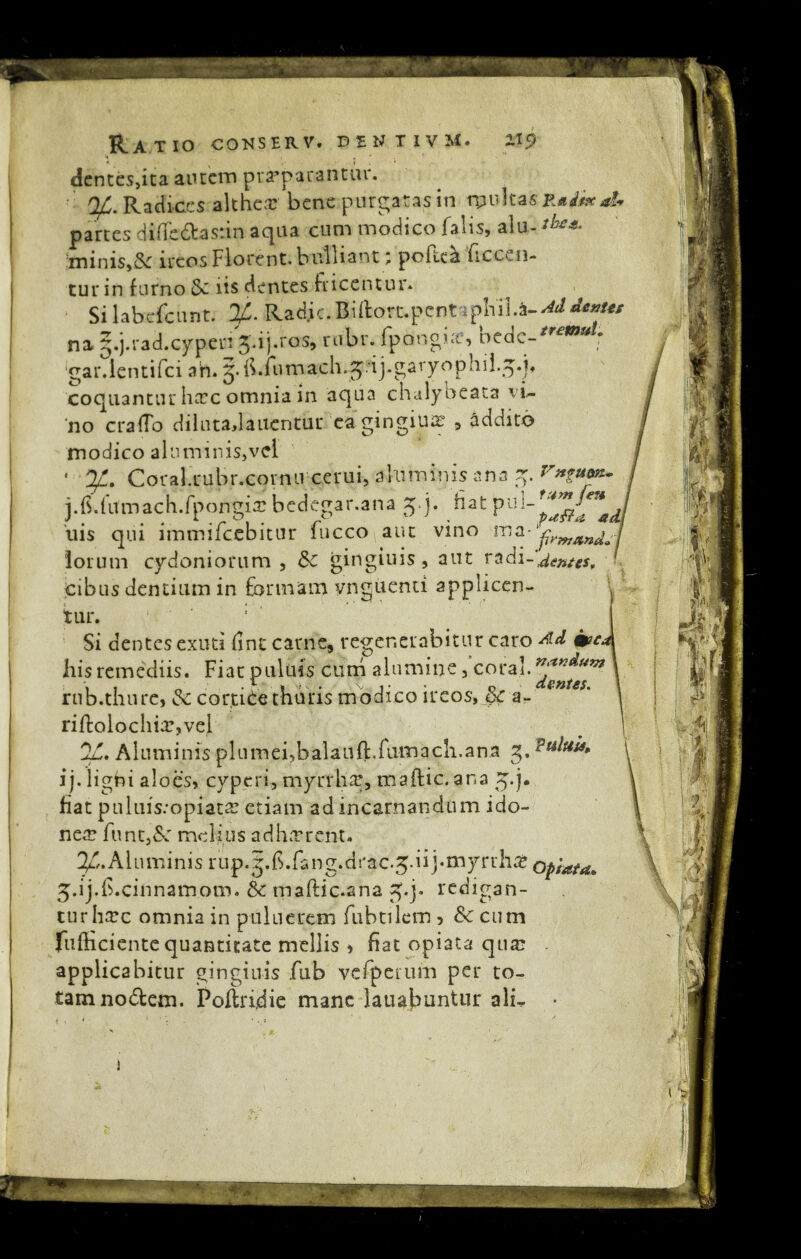 RATIO CONSERV. DENTIVM. 219
dentes,ita autem præparantur.
℞. Radices altheæ bene purgatas in multas Radix al-
partes diſſectas:in aqua cum modico ſalis, alu- theæ.
minis,& ireos Florent. bulliant; poſteà ſiccen-
tur in furno & iis dentes fricentur.
Si labeſcunt. ℞. Radic. Biſtort.pentaphil.à- Ad dentes
na ℥.j.rad.cyperi ʒ.ij.ros, rubr. ſpongiæ, bede- tremul.
gar.lentiſci an. ℥.ß.ſumach.ʒ.ij.garyophil.ʒ.j.
coquantur hæc omnia in aqua chalybeata vi-
no craſſo diluta,lauentur ea gingiuæ , addito
modico aluminis,vel
℞. Coral.rubr.cornu cerui, aluminis ana ʒ. Vnguen-
j.ß.ſumach.ſpongiæ bedegar.ana ʒ.j. fiat pul- tum ſeu
uis qui immiſcebitur ſucco aut vino ma- paſta ad
lorum cydoniorum , & gingiuis , aut radi- firmand.
cibus dentium in formam vnguenti applicen- dentes.
tur.
Si dentes exuti ſint carne, regenerabitur caro Ad
his remediis. Fiat puluis cum alumine , coral. nandum
rub.thure, & cortice thuris modico ireos, & a- dentes.
riſtolochiæ,vel
℞. Aluminis plumei,balauſt.ſumach.ana ʒ. Puluis.
ij. ligni aloës, cyperi, myrrhæ, maſtic. ana ʒ.j.
fiat puluis:opiatæ etiam ad incarnandum ido-
neæ ſunt,& melius adhærent.
℞.Aluminis rup.℥.ß.ſang.drac.ʒ.iij.myrrhæ Opiata.
ʒ.ij.ß.cinnamom. & maſtic.ana ʒ.j. redigan-
tur hæc omnia in puluerem ſubtilem , & cum
ſufficiente quantitate mellis , fiat opiata quæ
applicabitur gingiuis ſub veſperum per to-
tam noctem. Poſtridie mane lauabuntur ali-